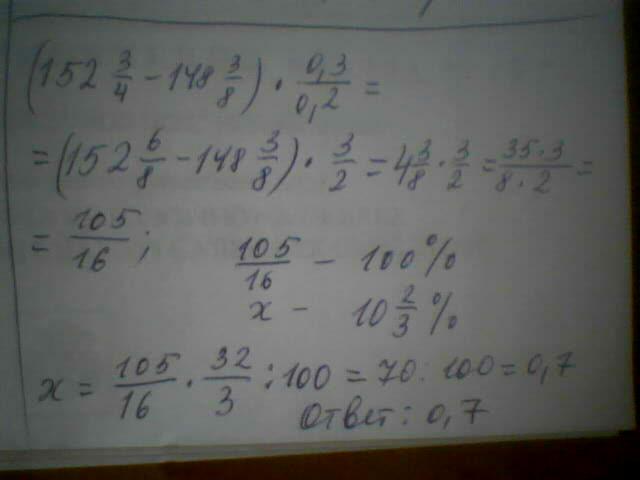 (152 3/4 - 148 3/8) · 0,3/0,2 =
= (152 6/8 - 148 3/8) · 3/2 = 4 3/8 · 3/2 = 35·3/8·2 =
= 105/16 ;
105/16 - 100%
x - 10 2/3 %
x = 105/16 · 32/3 : 100 = 70 : 100 = 0,7
Ответ: 0,7